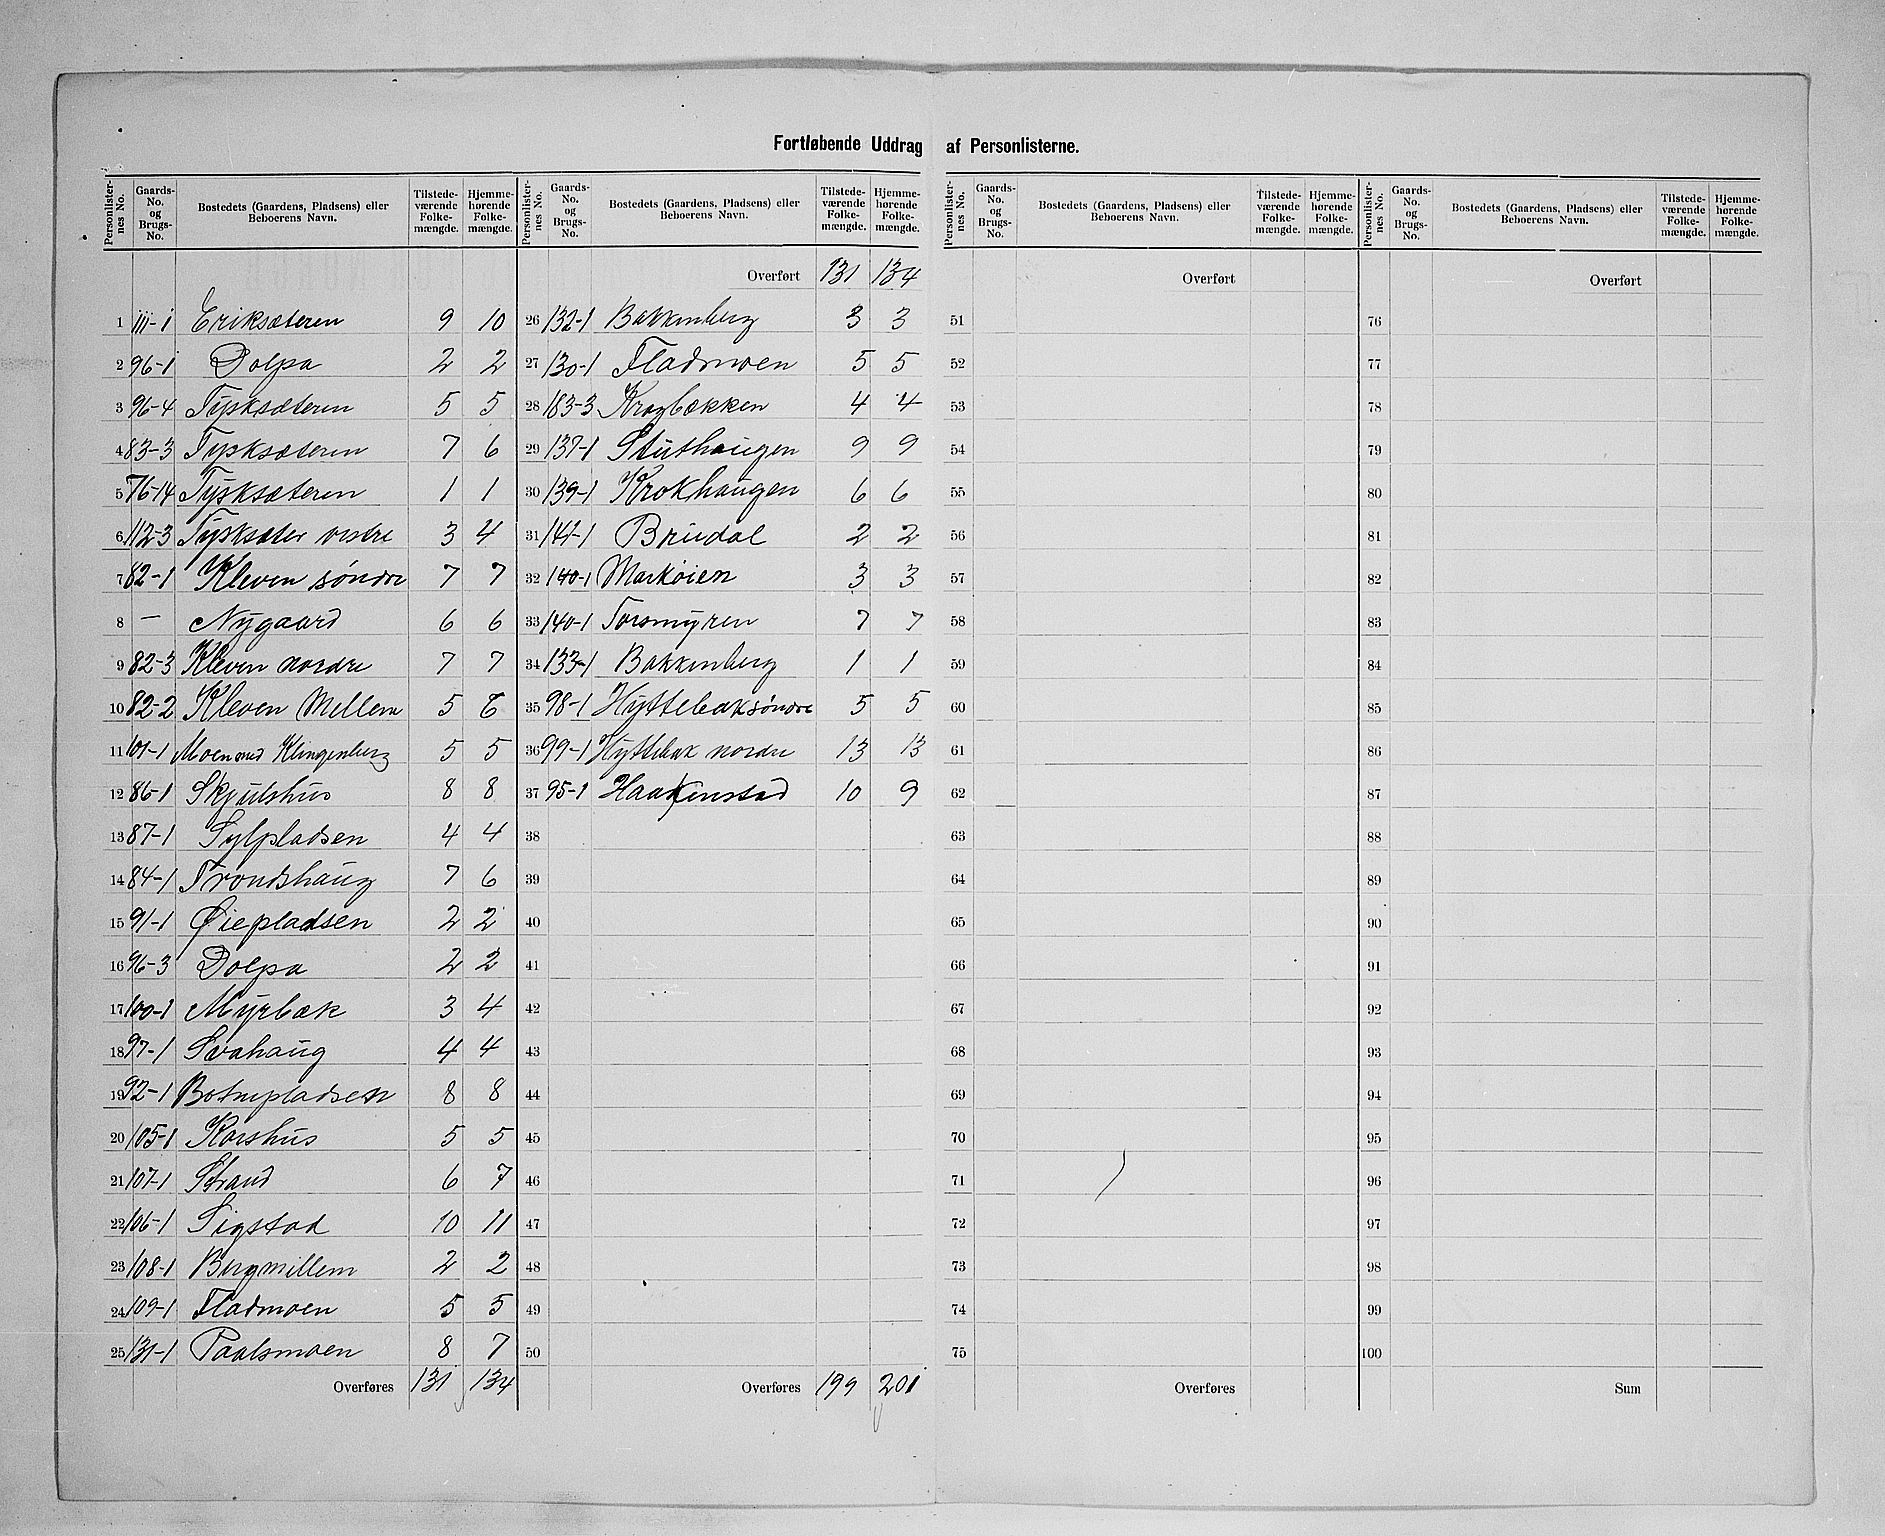 Fortløbende Uddrag af Personlisterne.
Personlisternes No. Gaards-No. og Brugs-No. Bostedets (Gaardens, Pladsens) eller Beboerens Navn. Tilstedeværende Folkemængde. Hjemmehørende Folkemængde.
1 111-1 Eriksæteren 9 10
2 96-1 Dolpa 2 2
3 96-4 Tysksæteren 5 5
4 83-3 Tysksæteren 7 6
5 76-14 Tysksæteren 1 1
6 112-3 Tysksæter vestre 3 4
7 82-1 Kleven søndre 7 7
8 — Nygaard 6 6
9 82-3 Kleven nordre 7 7
10 82-2 Kleven Mellem 5 6
11 101-1 Moen med Klingenberg 5 5
12 86-1 Skjulshus 8 8
13 87-1 Sylpladsen 4 4
14 84-1 Trondshaug 7 6
15 91-1 Øiepladsen 2 2
16 96-3 Dolpa 2 2
17 100-1 Myrbæk 3 4
18 97-1 Svahaug 4 4
19 92-1 Botnpladsen 8 8
20 105-1 Korshus 5 5
21 107-1 Strand 6 7
22 106-1 Sigstad 10 11
23 108-1 Bergmillem 2 2
24 109-1 Fladmoen 5 5
25 131-1 Paalsmoen 8 7
Overføres 131 134
Personlisternes No. Gaards-No. og Brugs-No. Bostedets (Gaardens, Pladsens) eller Beboerens Navn. Tilstedeværende Folkemængde. Hjemmehørende Folkemængde.
Overført 131 134
26 132-1 Bakkenberg 3 3
27 130-1 Fladmoen 5 5
28 183-3 Krogbækken 4 4
29 137-1 Stuthaugen 9 9
30 139-1 Krokhaugen 6 6
31 141-1 Brudal 2 2
32 140-1 Markøien 3 3
33 140-1 Torsmyren 7 7
34 133-1 Bakkenberg 1 1
35 98-1 Hyttebak søndre 5 5
36 99-1 Hyttebak nordre 13 13
37 95-1 Haakenstad 10 9
38
39
40
41
42
43
44
45
46
47
48
49
50
Overføres 199 201
Personlisternes No. Gaards-No. og Brugs-No. Bostedets (Gaardens, Pladsens) eller Beboerens Navn. Tilstedeværende Folkemængde. Hjemmehørende Folkemængde.
Overført
51
52
53
54
55
56
57
58
59
60
61
62
63
64
65
66
67
68
69
70
71
72
73
74
75
Overføres
Personlisternes No. Gaards-No. og Brugs-No. Bostedets (Gaardens, Pladsens) eller Beboerens Navn. Tilstedeværende Folkemængde. Hjemmehørende Folkemængde.
Overført
76
77
78
79
80
81
82
83
84
85
86
87
88
89
90
91
92
93
94
95
96
97
98
99
100
Sum